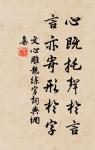 心既托聲於言
言亦寄形於字
文心雕龍練字詞典網
集